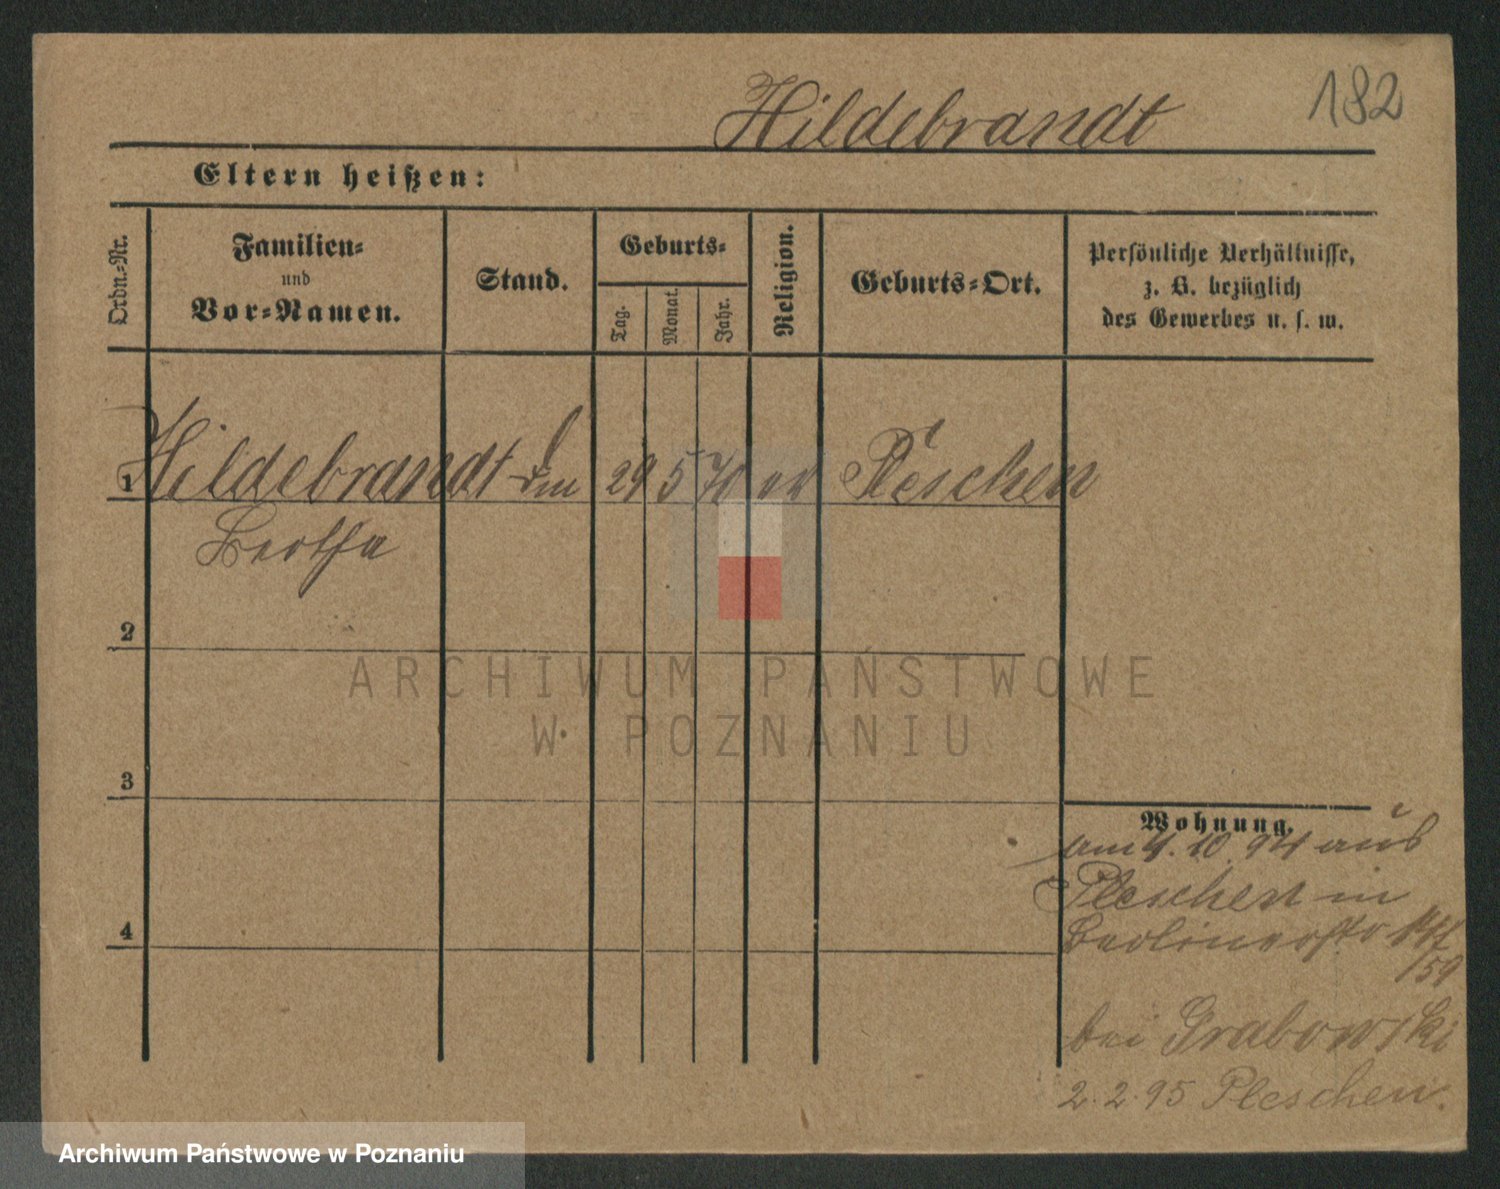 182
Hildebrandt
Eltern heißen:
Ordn.-Nr.
Familien-
und
Vor-Namen.
Stand.
Geburts-
Tag.
Monat.
Jahr.
Religion.
Geburts-Ort.
Persönliche Verhältnisse,
z. B. bezüglich
des Gewerbes u. s. w.
1 Hildebrandt 29 5 70 Pleschen
Bertha
2
3
4
Wohnung.
am 4. 10. 94 aus
Pleschen in
Berlinerstr
bei Grabowski
2. 2. 95 Pleschen.
ARCHIWUM PAŃSTWOWE
W POZNANIU
Archiwum Państwowe w Poznaniu